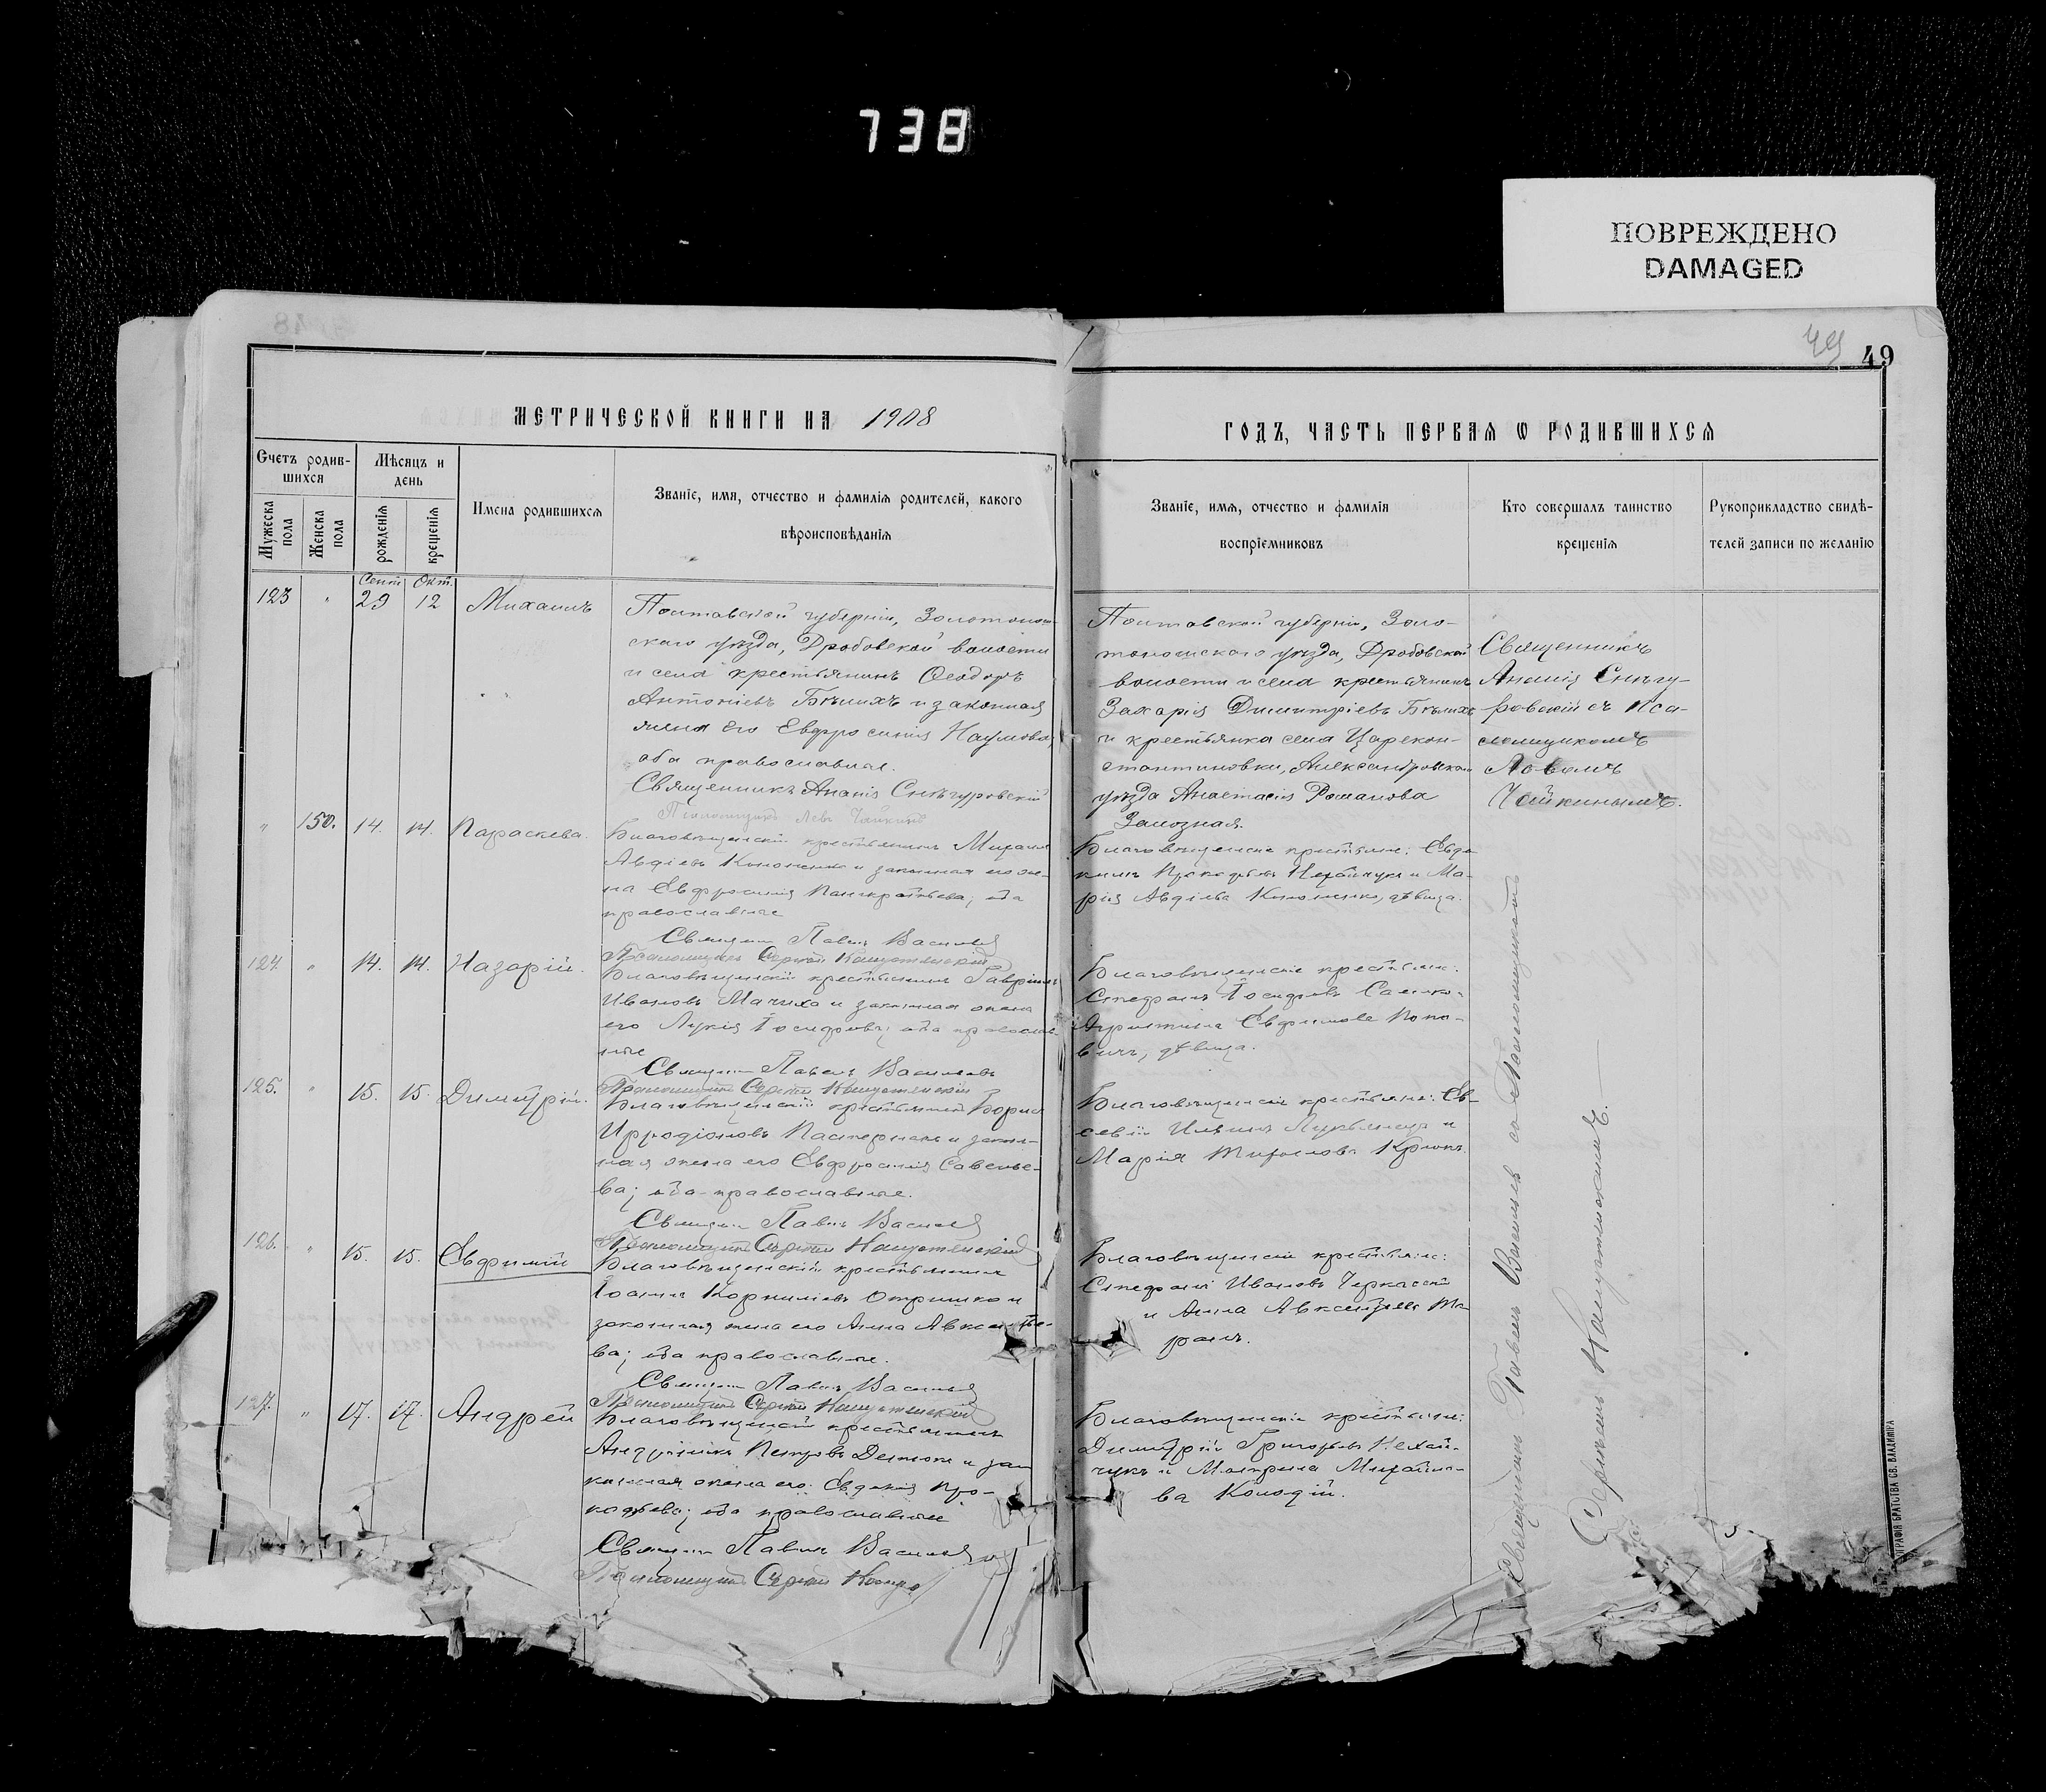 738
ПОВРЕЖДЕНО
DAMAGED
49
49
МЕТРИЧЕСКОЙ КНИГИ НА 1908
ГОДЪ, ЧАСТЬ ПЕРВАЯ Ѡ РОДИВШИХСЯ
Счетъ родив-
шихся
Мужеска пола
Женска пола
Мѣсяцъ и
день
рожденія
крещенія
Имена родившихся
Званіе, имя, отчество и фамилія родителей, какого
вѣроисповѣданія
Званіе, имя, отчество и фамилія
воспріемниковъ
Кто совершалъ таинство
крещенія
Рукоприкладство свидѣ-
телей записи по желанію
Сент. Окт.
123 " 29 12 Михаилъ
Полтавской губерніи, Золотонош-
скаго уѣзда, Дробовской волости
и села крестьянинъ Ѳеодоръ
Антоніевъ Бѣлихъ и законная
жена его Евфросинія Наумова,
оба православные.
Священникъ Ананія Снѣгуровскій
Псаломщикъ Левъ Чайкинъ
Полтавской губерніи, Золо-
тоношскаго уѣзда, Дробовской
волости и села крестьянинъ
Захарія Димитріевъ Бѣлихъ
и крестьянка села Царекон-
стантиновки, Александровскаго
уѣзда Анастасія Романова
Зализная.
Священникъ
Ананія Снѣгу-
ровскій съ Пса-
ломщикомъ
Львомъ
Чайкинымъ.
" 150. 14. 14. Параскева.
Благовѣщенскій крестьянинъ Михаилъ
Авдіевъ Кононенко и законная его же-
на Евфросинія Панкратьева; оба
православные
Священникъ Павелъ Васильевъ
Псаломщикъ Сергій
Благовѣщенскіе крестьяне: Евдо-
кимъ Прокофьевъ Нехайчукъ и Ма-
рія Авдіева Кононенко, дѣвица.
124. " 14. 14. Назарій.
Благовѣщенскій крестьянинъ Гавріилъ
Ивановъ Мачихо и законная жена
его Лукія Іосифова; оба православ-
ные
Священникъ Павелъ Васильевъ
Псаломщикъ Сергій
Благовѣщенскіе крестьяне:
Стефанъ Іосифовъ
Евфимова Попо-
вичъ, дѣвица.
125. " 15. 15. Димитрій.
Благовѣщенскій крестьянинъ Борисъ
Иродіоновъ и закон-
ная жена его Евфросинія Савелье-
ва; оба православные.
Священникъ Павелъ Васильевъ
Псаломщикъ Сергій
Благовѣщенскіе крестьяне: Ев-
севій Ильинъ и
Марія Крюкъ.
126. " 15. 15. Евфимій
Благовѣщенскій крестьянинъ
Іоаннъ Корниліевъ Отришко и
законная жена его Анна Авксентье-
ва; оба православные.
Священникъ Павелъ Васильевъ
Псаломщикъ Сергій
Благовѣщенскіе крестьяне:
Стефанъ Ивановъ Черкасскій
и Анна Авксентьева Та-
ранъ.
127. " 17. 17. Андрей
Благовѣщенскій крестьянинъ
Петровъ и за-
конная жена его Евдокія Про-
кофьева; оба православные
Священникъ Павелъ Васильевъ
Псаломщикъ Сергій
Благовѣщенскіе крестьяне:
Димитрій Григорьевъ Нехай-
чукъ и Матрона Михайло-
ва Колодій.
Священникъ Павелъ Васильевъ съ Псаломщикомъ
Сергіемъ
БРАТСТВА СВ. ВЛАДИМІРА